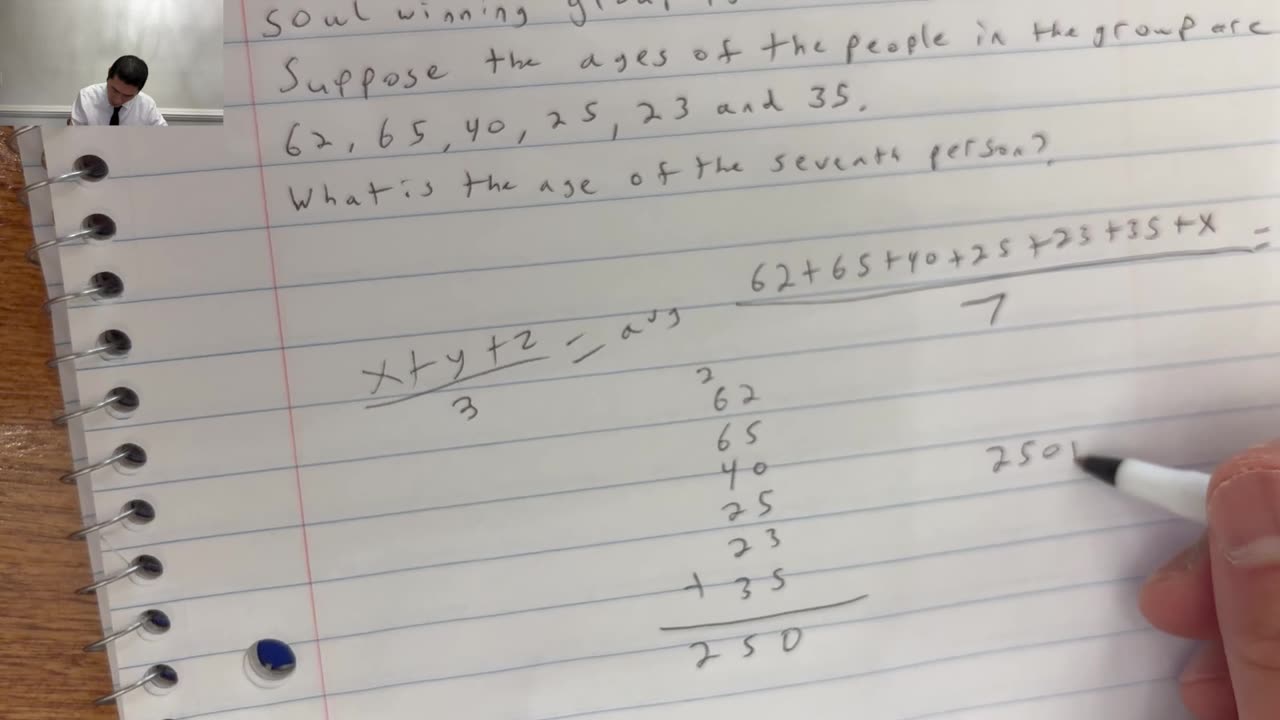 soul winning group
Suppose the ages of the people in the group are
62, 65, 40, 25, 23 and 35.
What is the age of the seventh person?
62+65+40+25+23+35+x =
7
x+y+z = avg
3
2
62
65
40
25
23
+ 35
250
250